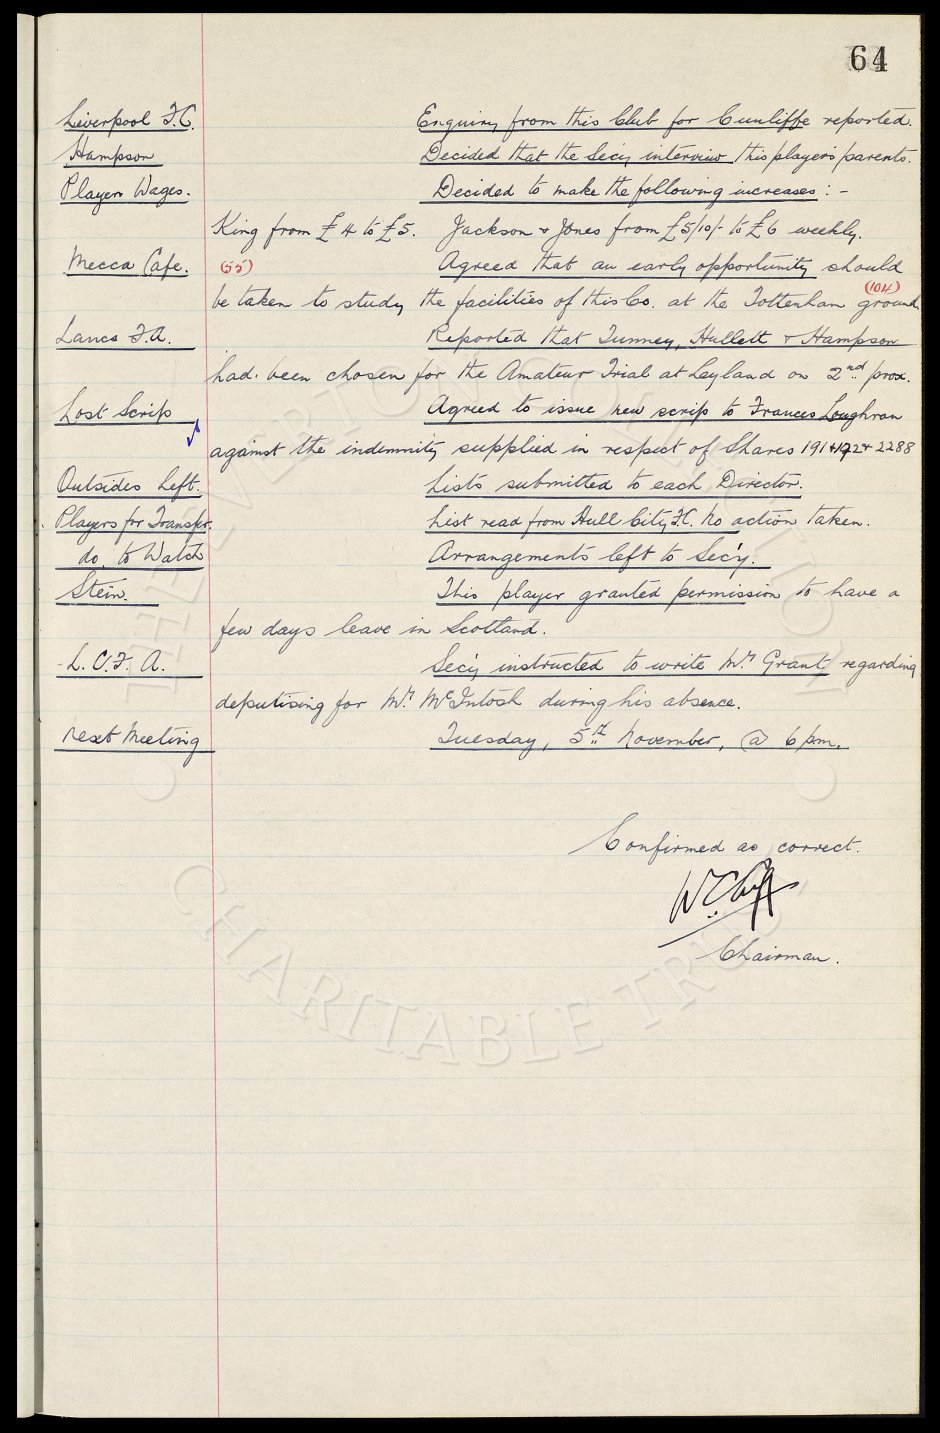 64
Liverpool F.C. Enquiry from this Club for Cunliffe reported.
Hampson Decided that the Secy interview this player's parents.
Players Wages. Decided to make the following increases :-
King from £4 to £5. Jackson & Jones from £5/10/- to £6 weekly.
Mecca Cafe. (55) Agreed that an early opportunity should
be taken to study the facilities of this Co. at the Tottenham ground. (104)
Lancs F.A. Reported that Tunney, Hullett & Hampson
had been chosen for the Amateur Trial at Leyland on 2nd prox.
Lost Scrip Agreed to issue new scrip to Frances Loughran
against the indemnity supplied in respect of Shares 191 & 192 & 2288
Outsides Left. Lists submitted to each Director.
Players for Transfer. List read from Hull City F.C. No action taken.
do. to Watch Arrangements left to Sec'y.
Stein. This player granted permission to have a
few days leave in Scotland.
L.C.F.A. Secy instructed to write Mr. Grant regarding
deputising for Mr. McIntosh during his absence.
Next Meeting Tuesday, 5th November, @ 6 pm.
Confirmed as correct.
Chairman.
THE EVERTON COLLECTION
CHARITABLE TRUST